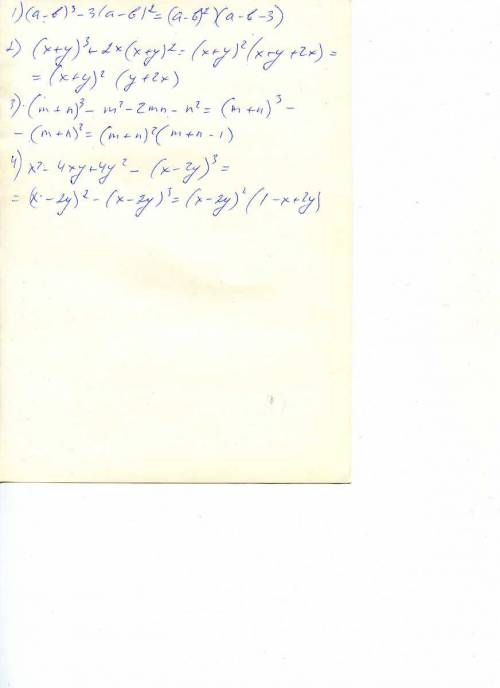 1) (a-b)³ - 3(a-b)² = (a-b)²)(a-b-3)
2) (x+y)³ + 2x(x+y)² = (x+y)²(x+y+2x) =
= (x+y)² (y+2x)
3) (m+n)³ - m² - 2mn - n² = (m+n)³ -
- (m+n)² = (m+n)²(m+n-1)
4) x² - 4xy + 4y² - (x-2y)³ =
= (x-2y)² - (x-2y)³ = (x-2y)² (1-x+2y)